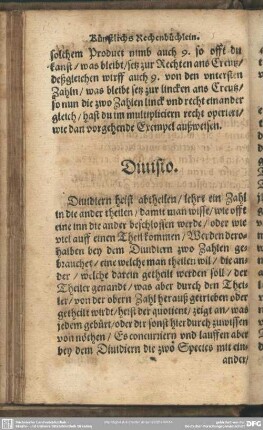 Künstlichs Rechenbüchlein.
solchem Product nimb auch 9. so offt du
kanst / was bleibt / setz zur Rechten ans Creutz /
deßgleichen wirff auch 9. von den untersten
Zahln / was bleibt setz zur lincken ans Creutz /
so nun die zwo Zahlen linck vnd recht einander
gleich / hast du im multipliciern recht operiert /
wie dan vorgehende Exempel außweisen.
Diuisio.
Diuidiern heist abtheilen / lehrt ein Zahl
in die ander theilen / damit man wisse / wie offt
eine inn die ander beschlossen werde / oder wie
viel auff einen Theil kommen / Werden dero-
halben bey dem Diuidiern zwo Zahlen ge-
brauchet / eine welche man theilen wil / die an-
der / welche darein getheilt werden soll / der
Theiler genandt / was aber durch den Thei-
ler / von der obern Zahl herauß getrieben oder
getheilt wirdt / heist der quotient / zeigt an / was
jedem gebürt / oder dir sonst hierdurch zuwissen
von nöthen / Es concurriern vnd lauffen aber
bey dem Diuidiern die zwo Species mit ein-
ander /